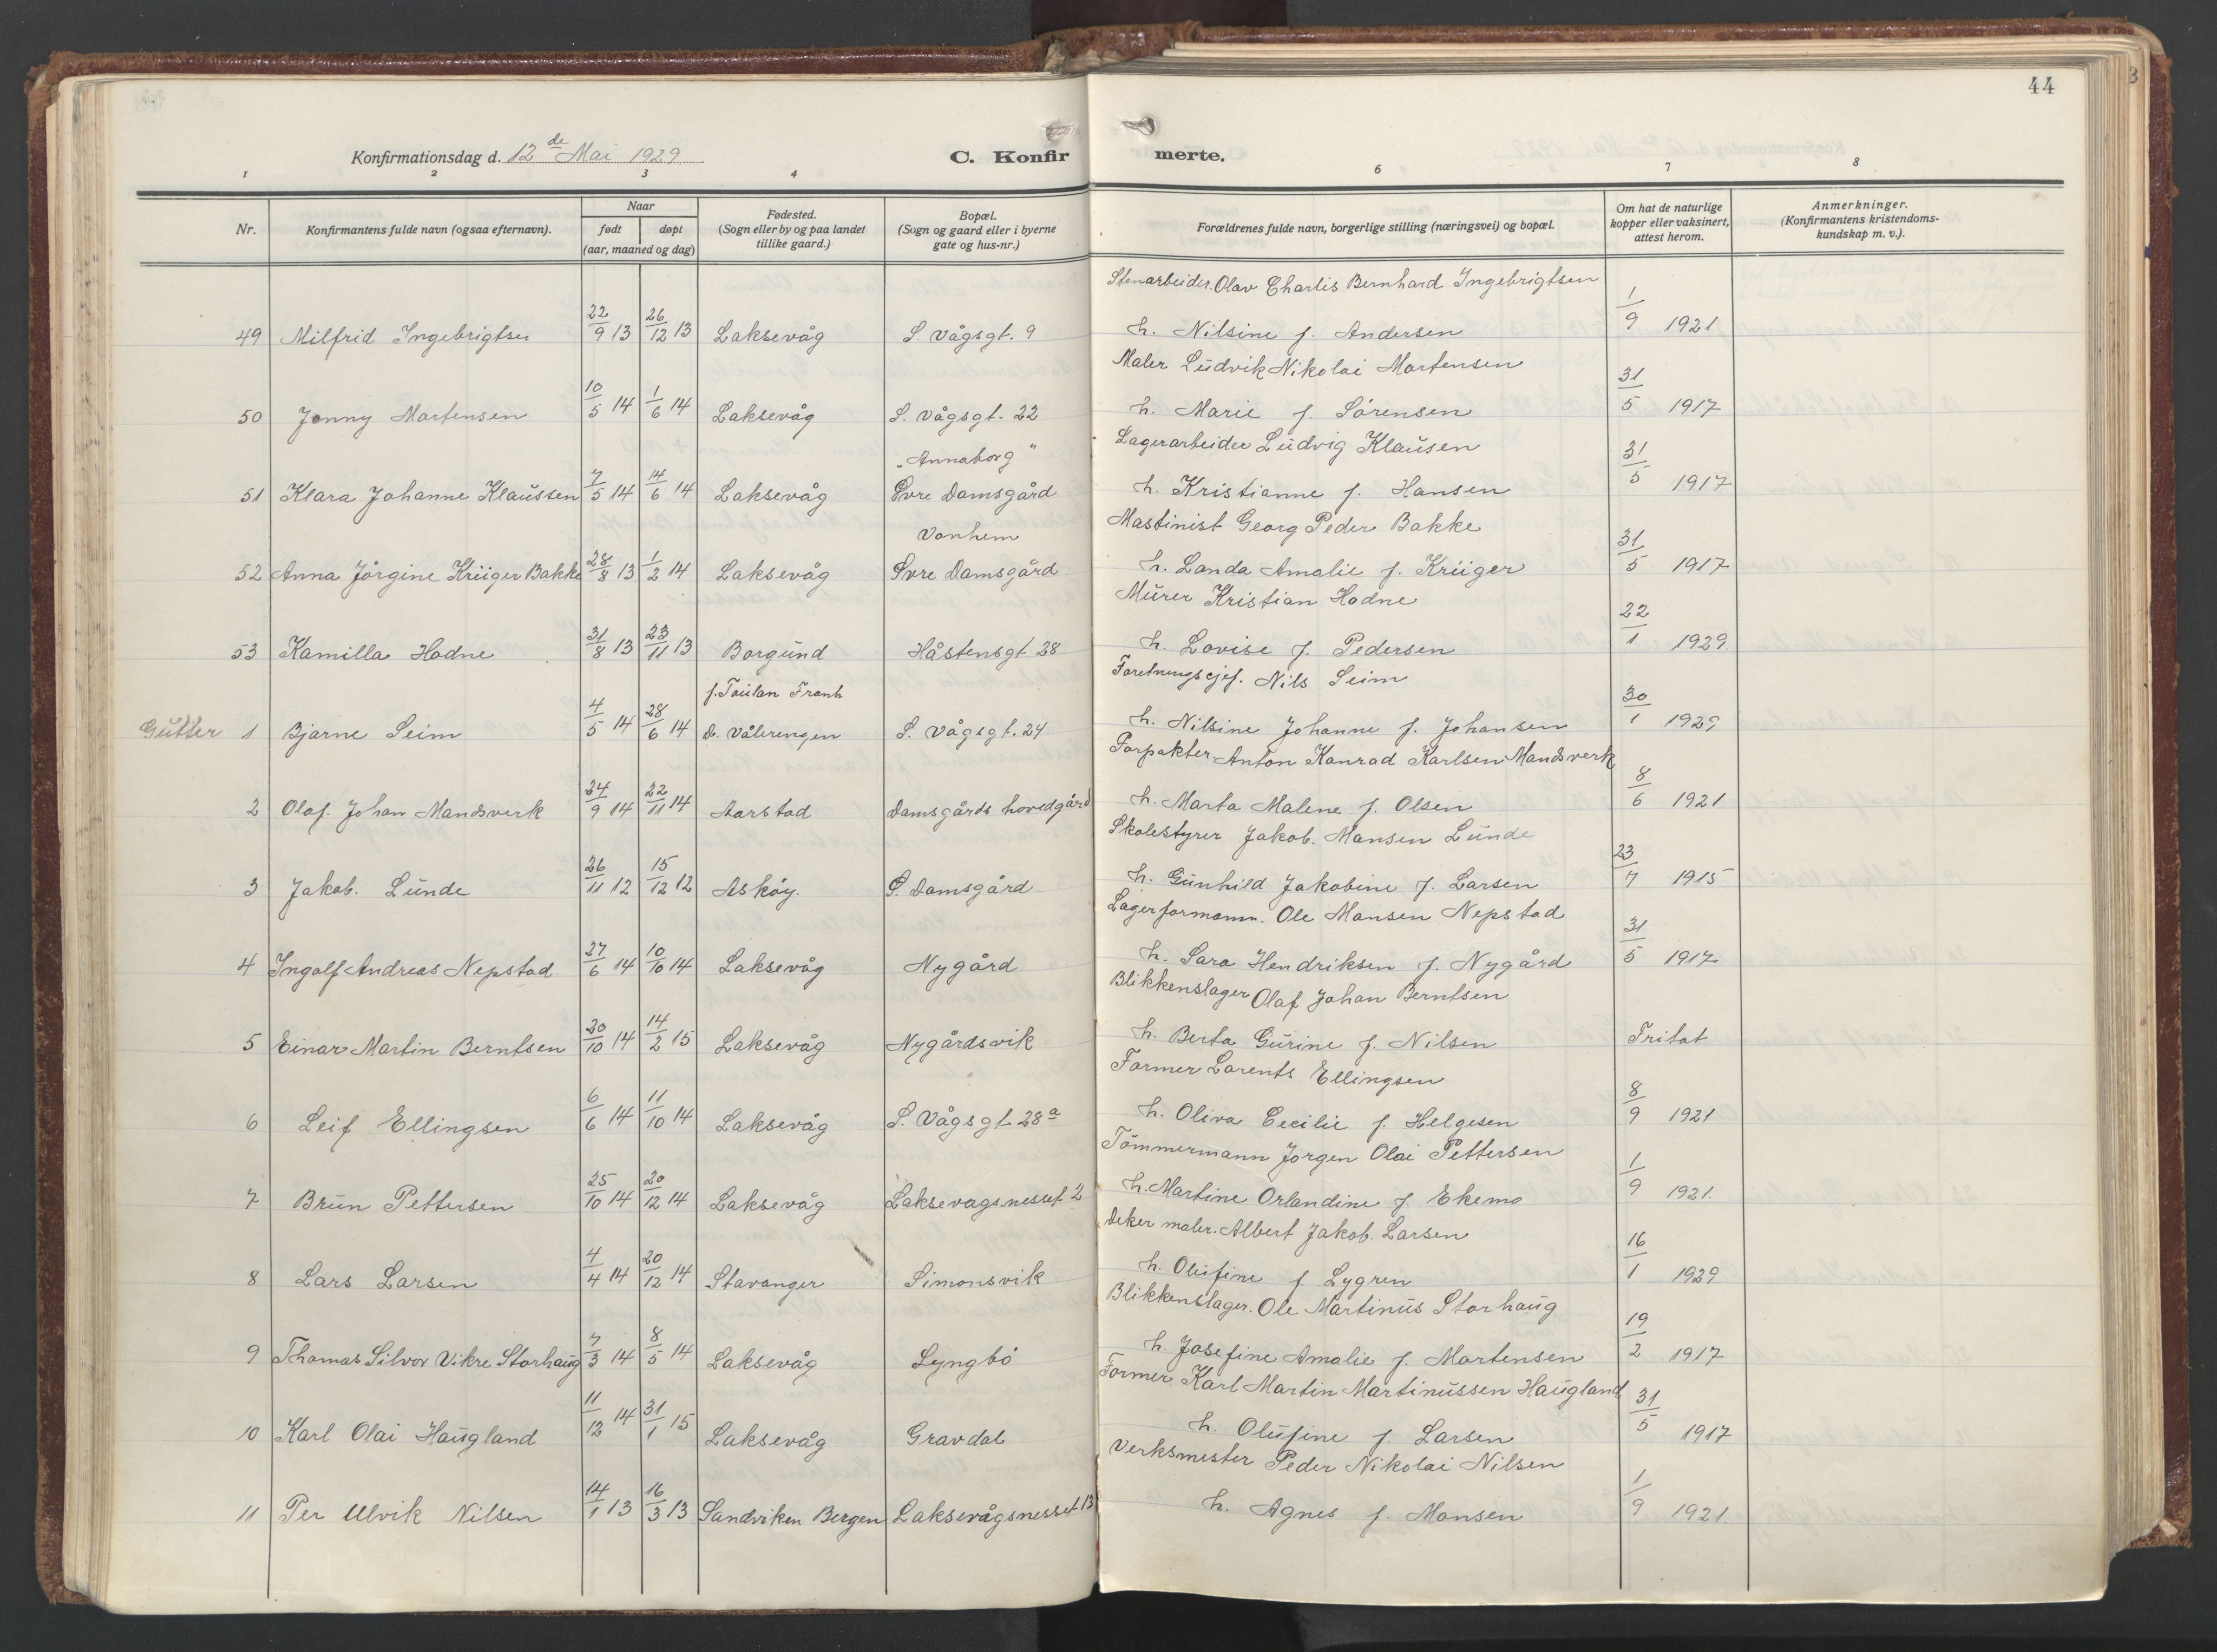 44
Konfirmationsdag d. 12de Mai 1929
C. Konfirmerte.
1 2 3 4 6 7 8
Nr.
Konfirmantens fulde navn (ogsaa efternavn).
Naar
født døpt
(aar, maaned og dag)
Fødested.
(Sogn eller by og paa landet
tillike gaard.)
Bopæl.
(Sogn og gaard eller i byerne
gate og hus-nr.)
Forældrenes fulde navn, borgerlige stilling (næringsvei) og bopæl.
Om hat de naturlige
kopper eller vaksinert,
attest herom.
Anmerkninger.
(Konfirmantens kristendoms-
kundskap m. v.).
Stenarbeider. Olav Charlis Bernhard Ingebrigtsen
49 Milfrid Ingebrigtsen 22/9 13 26/12 13 Laksevåg S. Vågsgt. 9 h. Nilsine f. Andersen 1/9 1921
Maler Ludvik Nikolai Martensen
50 Jenny Martensen 10/5 14 1/6 14 Laksevåg S. Vågsgt. 22 h. Marie f. Sörensen 31/5 1917
"Annaborg" Lagerarbeider Ludvig Klausen
51 Klara Johanne Klaussen 7/5 14 14/6 14 Laksevåg Övre Damsgård h. Kristianne f. Hansen 31/5 1917
Vonhem Mastinist Georg Peder Bakke
52 Anna Jörgine Krüger Bakke 28/8 13 1/2 14 Laksevåg Övre Damsgård h. Landa Amalie f. Krüger 31/5 1917
Murer Kristian Hodne
53 Kamilla Hodne 31/8 13 23/11 13 Borgund Håstensgt 28 h. Lovise f. Pedersen 22/1 1929.
f. Toulon Frank Foretningscjef. Nils Seim
Gutter 1 Bjarne Seim 4/5 14 28/6 14 d. Vålerengen S. Vågsgt. 24 h. Nilsine Johanne f. Johansen 30/1 1929
Forpakter Anton Konrad Karlsen Mandsverk
2 Olaf Johan Mandsverk 24/9 14 22/11 14 Aarstad Damsgårds hovedgård h. Marta Malene f. Olsen 8/6 1921
Skolestyrer Jakob. Mansen Lunde
3 Jakob. Lunde 26/11 12 15/12 12 Asköy. S. Damsgård h. Gunhild Jakobine f. Larsen 23/7 1915
Lagerformann. Ole Monsen Nepstad
4 Ingolf Andreas Nepstad 27/6 14 10/10 14 Laksevåg Nygård h. Sara Hendriksen f. Nygård 31/5 1917
Blikkenslager Olaf Johan Berntsen
5 Einar Martin Berntsen 20/10 14 14/2 15 Laksevåg Nygårdsvik h. Berta Gurine f. Nilsen Fritat
Former Lorents Ellingsen
6 Leif Ellingsen 6/6 14 11/10 14 Laksevåg S. Vågsgt 28a h. Oliva Cecilie f. Helgesen 8/9 1921
Tömmermann Jörgen Olai Pettersen
7 Brun Pettersen 25/10 14 20/12 14 Laksevåg Laksevagsnesset 2 h. Martine Orlandine f. Ekemo 1/9 1921.
Deker maler. Albert Jakob. Larsen
8 Lars Larsen 4/4 14 20/12 14 Stavanger Simonsvik h. Olufine f. Lygren 16/1 1929
Blikkenslager. Ole Martinus Storhaug
9 Thomas Silvor Vikre Storhaug 7/3 14 8/5 14 Laksevåg Lyngbö h. Josefine Amalie f. Mortensen 19/2 1917
Former Karl Martin Martinussen Haugland
10 Karl Olai Haugland 11/12 14 31/1 15 Laksevåg Gravdal h. Olufine f. Larsen 31/5 1917
Verksmester Peder Nikolai Nilsen
11 Per Ulvik Nilsen 14/1 13 16/3 13 Sandviken Bergen Laksevågsnesset 13 h. Agnes f. Monsen 1/9 1921.